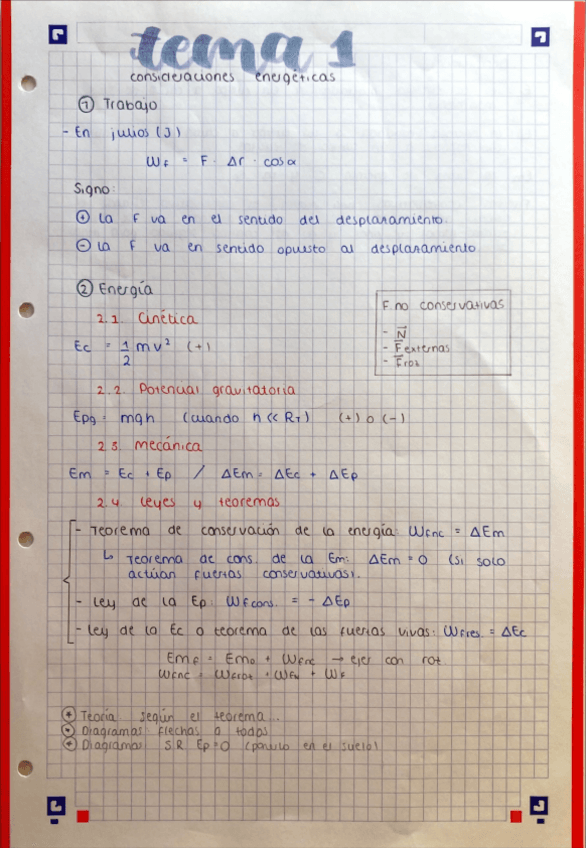 tema 1
consideraciones energéticas
① Trabajo
- En julios (J)
WF = F · Δr · cosα
Signo:
⊕ La F va en el sentido del desplazamiento.
⊖ La F va en sentido opuesto al desplazamiento.
② Energía
F no conservativas
- N⃗
- F⃗externas
- F⃗roz
2.1. Cinética
Ec = 1/2 mv² (+)
2.2. Potencial gravitatoria
Epg = mgh (cuando h << RT) (+) o (-)
2.3. Mecánica
Em = Ec + Ep / ΔEm = ΔEc + ΔEp
2.4. Leyes y teoremas
- Teorema de conservación de la energía: WFnc = ΔEm
↳ Teorema de cons. de la Em: ΔEm = 0 (si solo
actúan fuerzas conservativas).
- Ley de la Ep: WFcons. = - ΔEp
- Ley de la Ec o teorema de las fuerzas vivas: WFres. = ΔEc
EmF = Em0 + WFnc → ejer con roz
WFNC = WFroz + WFN + WF
* Teoría según el teorema...
* Diagramas flechas a todos
* Diagramas SR Ep=0 (ponulo en el suelo)